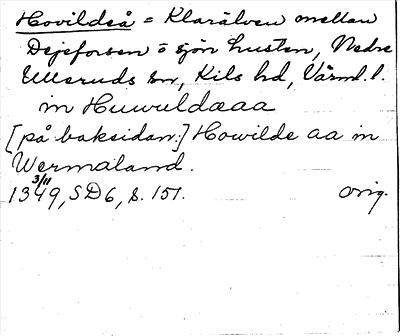 Hovildså = Klarälven mellan
Dejeforsen o sjön Lusten, Nedre
Ulleruds sn, Kils hd, Värml. l.
in Huwuldaaa
[på baksidan:] Howilde aa in
Wermaland.
13 3/11 49, SD6, s. 151. orig.